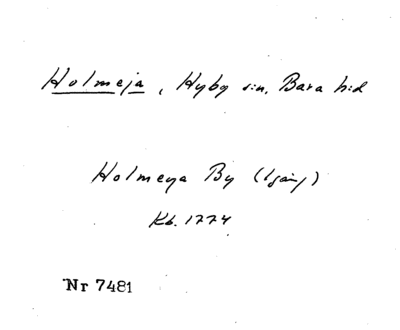 Holmeja, Hyby sn, Bara hd
Holmeya By (1 gång)
Kb. 1774
Nr 7481